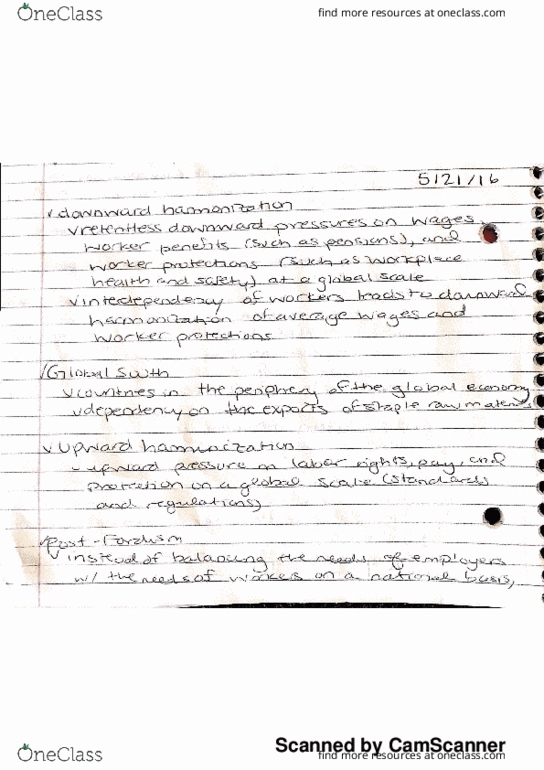 OneClass
find more resources at oneclass.com
5/21/16
✓downward harmonization
✓retentless downward pressures on wages,
worker penefits (such as pensions), and
worker protections (such as workplace
health and safety) at a global scale
✓intedependency of workers leads to downward
harmonization of average wages and
worker protections
✓Global Suth
✓countries in the periphery of the global economy
✓dependency on the exports of staple raw materials
✓Upward hamonization
- upward pressure on labor rights, pay, and
protection on a global scale (standards
and regulations)
✓Post-Fordism
✓instead of balancing the needs of employers
w/ the needs of workes on a national basis,
Scanned by CamScanner
OneClass
find more resources at oneclass.com